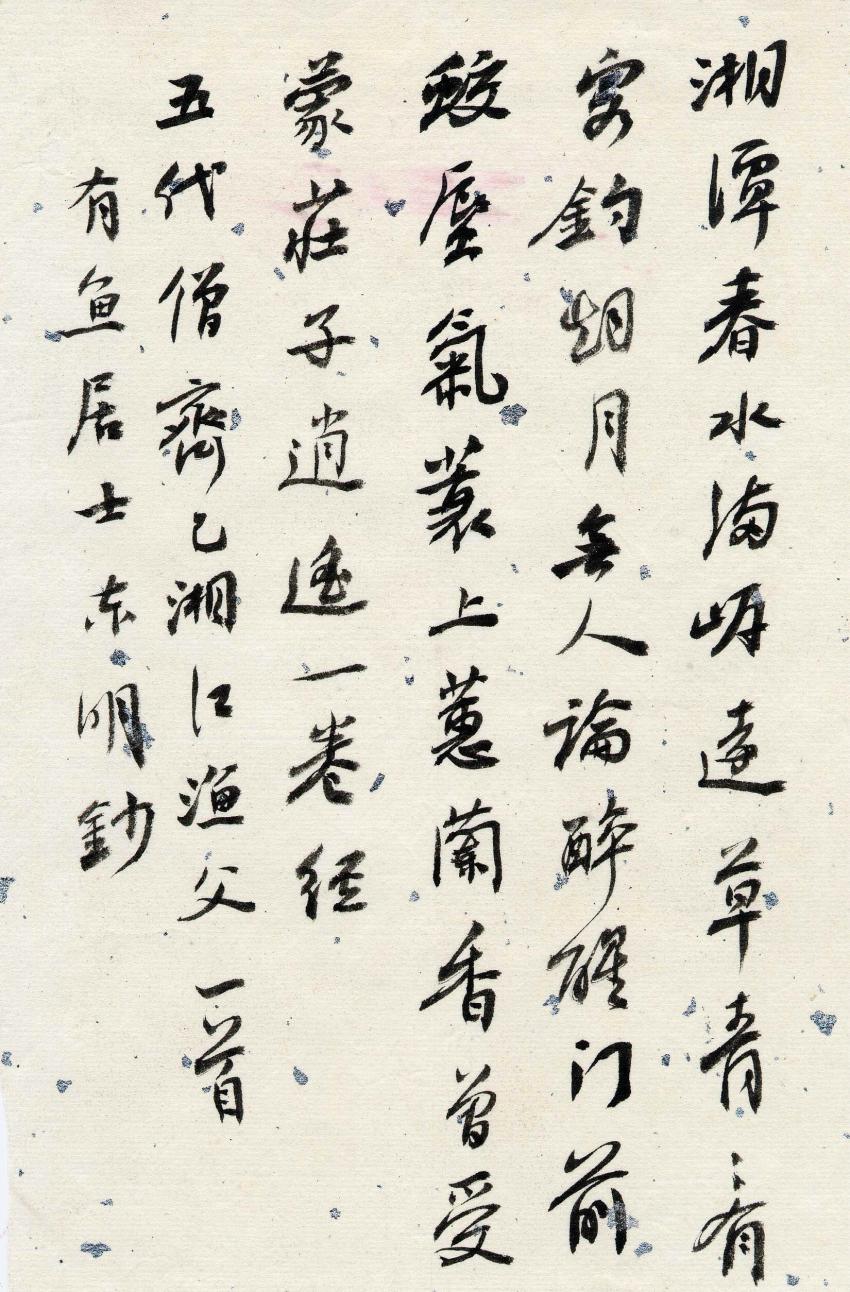 湘潭春水满岸遠草青〻有
客釣烟月無人論醉醒门前
蛟蜃氣蓑上蕙蘭香曾受
蒙莊子逍遙一卷经
五代僧齊己湘江漁父一首
有魚居士东明鈔